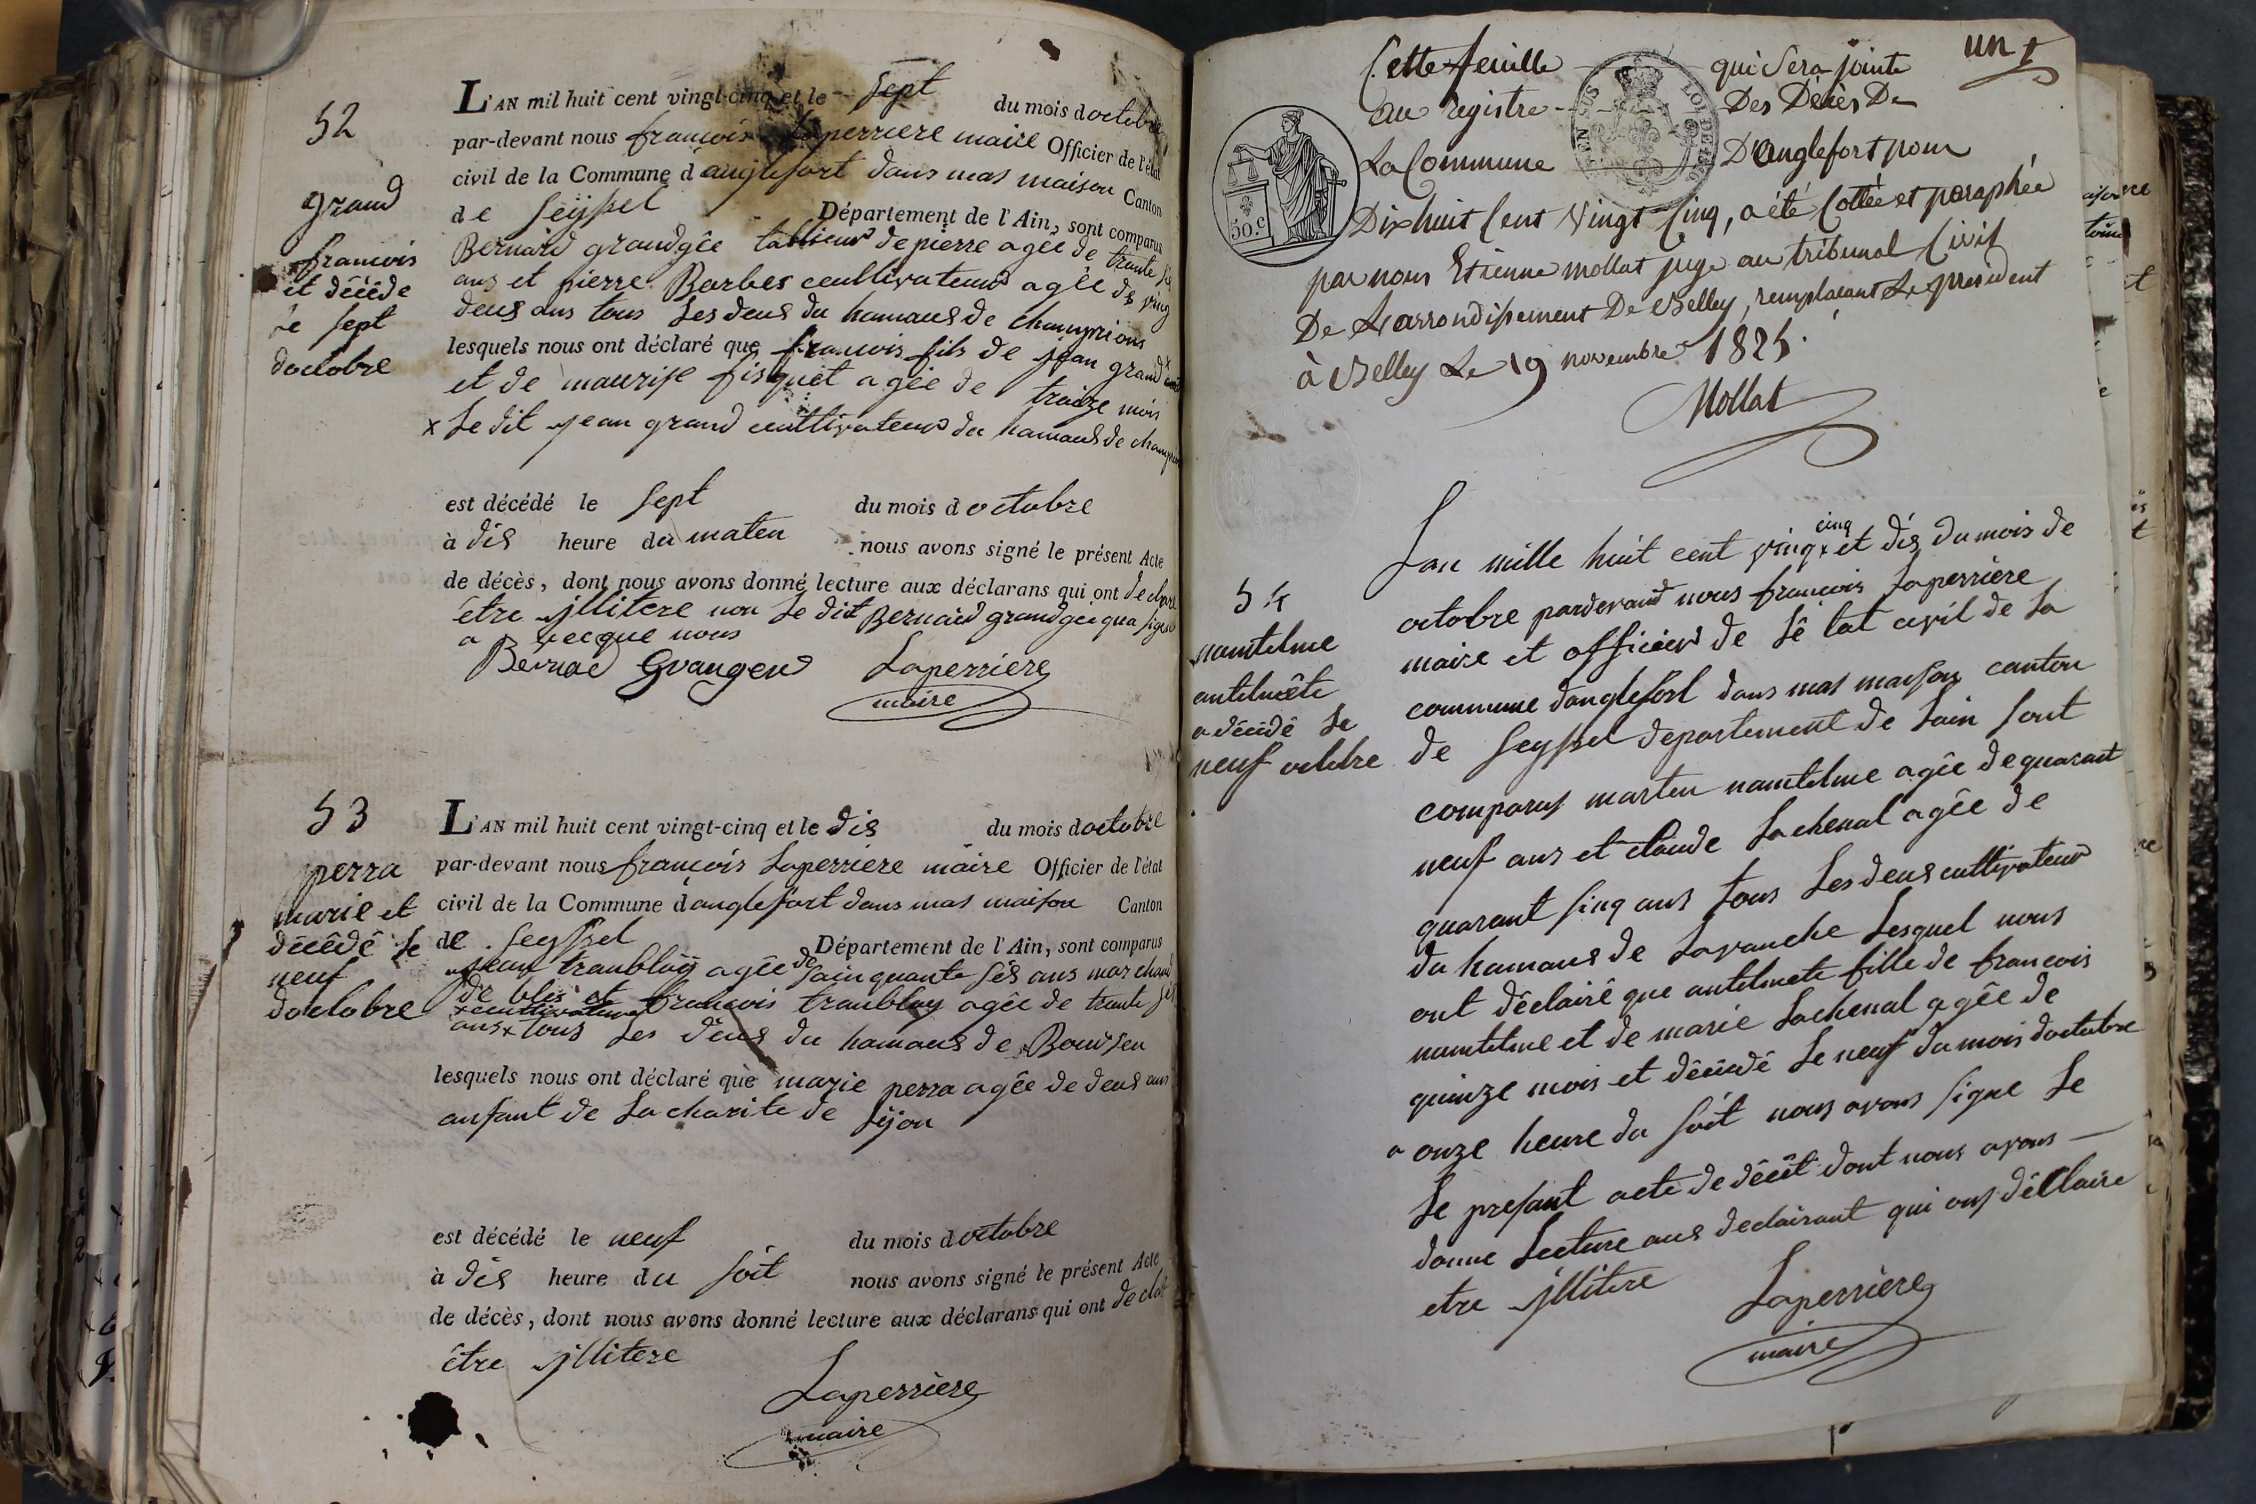 52
grand
francois
et décéde
le sept
doctobre
L'AN mil huit cent vingt-cinq et le sept du mois doctobre
par-devant nous francois Laperriere maire Officier de l'état
civil de la Commune d'anglefort dans mas maison Canton
de Seyssel Département de l'Ain, sont comparus
Bernard grandgêe de pierre agée de trante
ans et pierre Barbes ceultivateur agée de ving
deus ans tous Les deus du hamaus de champrion
lesquels nous ont déclaré que francois fils de jean grand x
et de maurise fisquet agée de traize mois
x Le dit jean grand cultivateur du hamaus de champrion
est décédé le sept du mois d octobre
à dis heure du maten nous avons signé le présent Acte
de décès, dont nous avons donné lecture aux déclarans qui ont declaré
être jllitere non Le dit Bernard grandgée qua signé
avecque nous
Bernad Grangeu Laperriere
maire
53
perra
marie et
décédé le
neuf
doctobre
L'AN mil huit cent vingt-cinq et le dis du mois doctobre
par-devant nous francois Laperriere maire Officier de l'état
civil de la Commune d'anglefort dans mas maison Canton
de Seyssel Département de l'Ain, sont comparus
jean tranbloy agée de sainquante sis ans marchand
de bles et francois tranbloy agée de trante
x cultivateur
ans x tous Les deus du hamaus de Boursen
lesquels nous ont déclaré que marie perra agée de deus ans
anfant de La charite de Lijon
est décédé le neuf du mois d octobre
à dis heure du soit nous avons signé le présent Acte
de décès, dont nous avons donné lecture aux déclarans qui ont declaré
être jllitere
Laperriere
maire
un
Cette feuille qui sera jointe
au registre Des Décès De
La Commune D'Anglefort pour
Dix huit Cent Vingt Cinq, a été Cottée et paraphée
par nous Etienne mollat juge au tribunal Civil
De L'arrondissement De Belley, remplacant Le president
à Belley Le 19 novembre 1825.
Mollat
50.c
LOI DE 1816
54
nantelme
antelmête
a décédé le
neuf octobre
Lan mille huit cent vinq x et dis du mois de
cinq
octobre pardevant nous francois Laperriere
maire et officier de Lê tat civil de La
commune danglefort dans mas maison canton
de Seyssel departement de Lain sont
comparus marten nantelme agée de quarant
neuf ans et Claude Lachenal agée de
quarant sinq ans tous Les deus cultivateur
du hamaus de Lavanche Lesquel nous
ont déclairé que antelmete fille de francois
nantelme et de marie Lachenal agée de
quinze mois et décédé le neuf du mois doctobre
a onze heure du soit nous avons signe Le
Le presant acte de décêt dont nous avons
donne Lecture aus declairant qui ons déClaire
etre jllitere Laperriere
maire